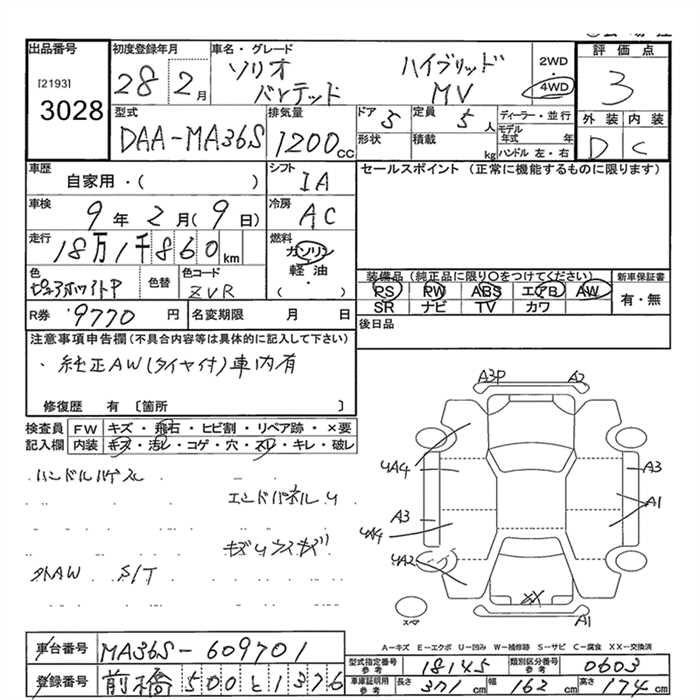 出品番号
[2193]
3028
初度登録年月
28 2月
車名・グレード
ソリオ ハイブリッド
バンデッド MV
2WD
4WD
評価点
3
外装 内装
D C
型式
DAA-MA36S
排気量
1200cc
ドア 5
形状
定員 5人
積載 kg
ディーラー・並行
モデル年式 年
ハンドル 左・右
車歴
自家用・( )
シフト
IA
セールスポイント (正常に機能するものに限ります)
車検
9年 2月 (9日)
冷房
AC
走行
18万1千860km
燃料
ガソリン
軽油
・
( )
色
ピュアホワイトP
色替
色コード
ZVR
装備品 (純正品に限り○をつけてください)
PS PW ABS エアB AW
SR ナビ TV カワ
新車保証書
有・無
R券 9770円
名変期限 月 日
後日品
注意事項申告欄(不具合内容等は具体的に記入して下さい)
・純正AW(タイヤ付)車内有
修復歴 有 〔箇所 〕
検査員 FW キズ・飛石・ヒビ割・リペア跡・×要
記入欄 内装 キズ・汚レ・コゲ・穴・スレ・キレ・破レ
エンドパネルU
外AW S/T
A3P A2
UA4 A3
A3 A1
UA4
UA2
XX
A1
スペア
A―キズ E―エクボ U―凹み W―補修跡 S―サビ C―腐食 XX―交換済
車台番号 MA36S-609701
型式指定番号 参考 18145 類別区分番号 参考 0603
登録番号 前橋 500 と 1376
車庫証明用 参考 長さ 371cm 幅 162cm 高さ 174cm